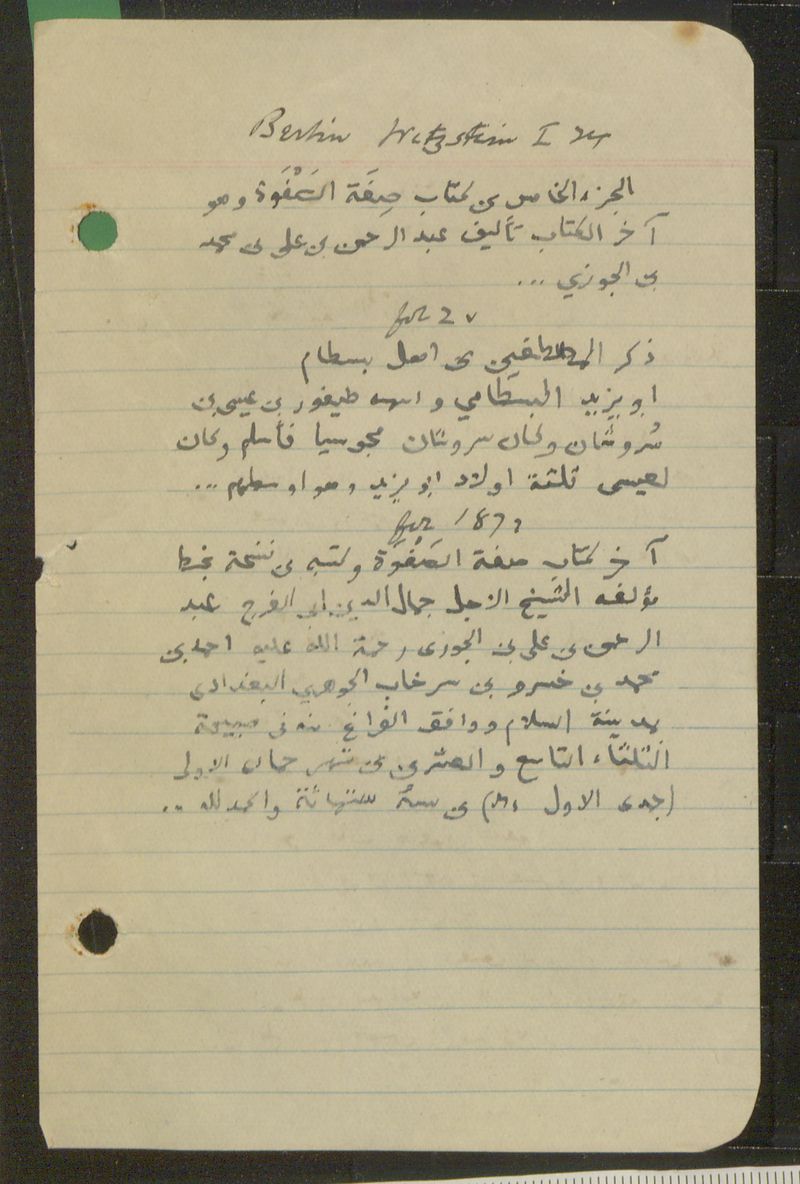 Berlin Wetzstein I
الجزء الخامس من كتاب صِفَة الصَّفْوَة وهو
آخر الكتاب تأليف عبد الرحمن بن على بن محمد
بن الجوزي ...
fol 2 v
ذكر المصطفين من اهل بسطام
ابو يزيد البسطامي واسمه طيفور بن عيسى بن
سُروشان وكان سروشان مجوسيا فأسلم وكان
لعيسى ثلثة اولاد ابو يزيد وهو اوسطهم ...
fol 187
آخر كتاب صفة الصَفْوَة وكتبه من نسخة بخط
مؤلفه الشيخ الاجل جمال الدين ابى الفرج عبد
الرحمن بن على بن الجوزى رحمة الله عليه احمد بن
محمد بن خسرو بن سرخاب الجوهري البغدادى
بمدينة السلام ووافق الفراغ منه فى صبيحة
الثلثاء التاسع والعشرين من شهر جمادى الاولى
(جمدى الاول) من سنة ستمائة والحمد لله ..